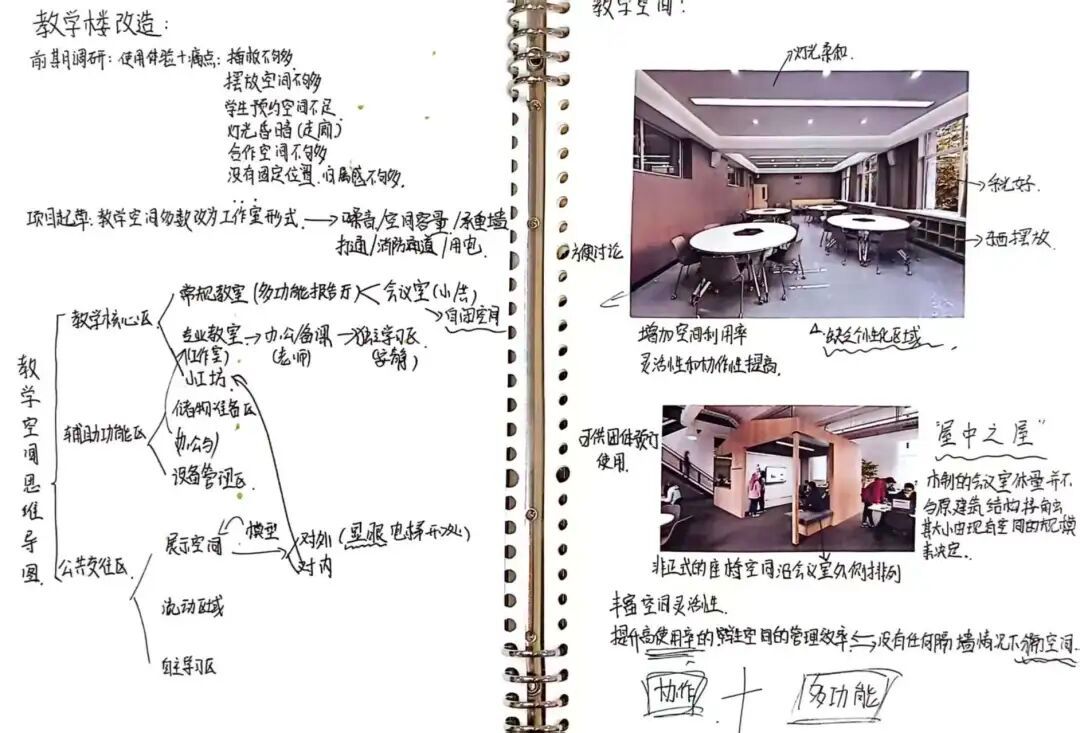 教学楼改造:
前期调研: 使用体验+痛点: 插板不够多
摆放空间不够多
学生预约空间不足
灯光昏暗(走廊)
合作空间不够多
没有固定位置.归属感不够多.
项目起草: 教学空间多数改为工作室形式. → 噪音/空间容量/承重墙
打通/消防通道/用电.
教学空间思维导图
教学核心区
常规教室(多功能报告厅
会议室(小结)
自闭空间
专业教室(工作室) → 办公备课(老师) → 独立学习区
小工坊.
辅助功能区
储物准备区
办公
设备管理区
公共交往区
展示空间
模型
对外
对内
(显眼 电梯
流动区域
自主学习区
教学空间:
灯光柔和
采光好.
东西摆放
方便讨论
增加空间利用率
灵活性和协作性提高.
缺乏个性化区域
可供团体预订
使用.
"屋中之屋"
的会议室体量并不
与原建筑结构
其大小由现有空间的规模
来决定.
非正式的座椅空间沿会议室外侧排列
丰富空间灵活性.
提升高使用率的 空间的管理效率 ⇆ 没有任何隔墙情况下 空间.
协作 + 多功能